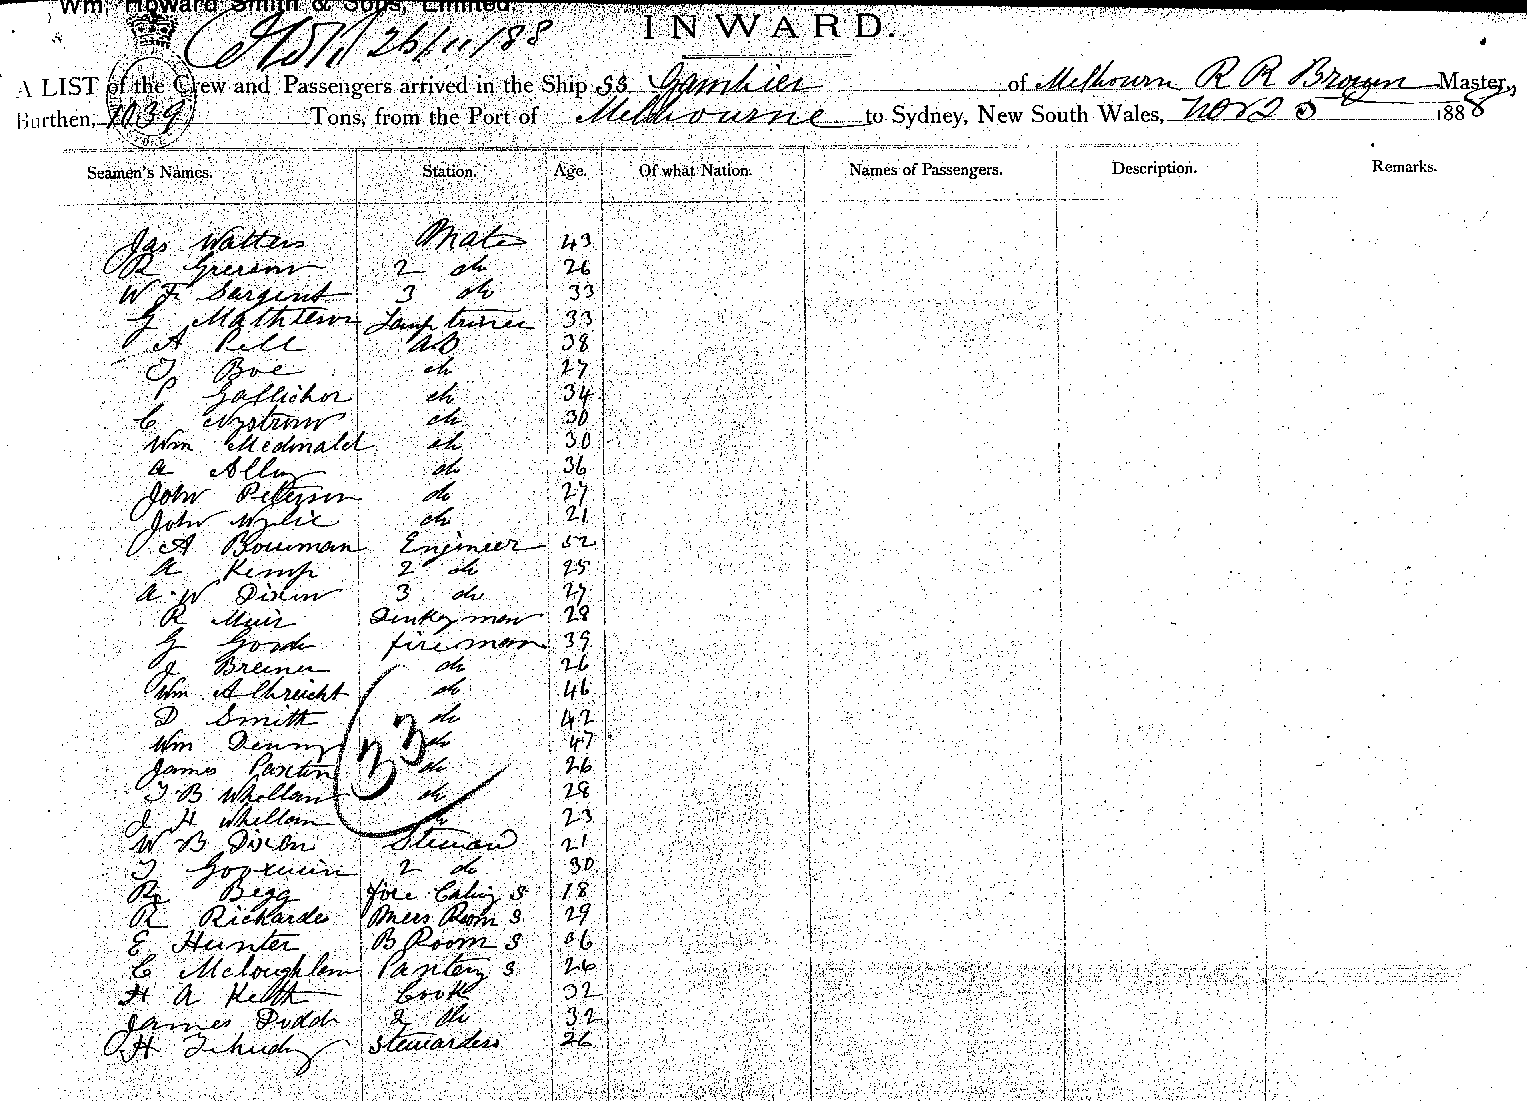 Wm. Howard Smith & Sons, Limited.
INWARD.
26/11/88
A LIST of the Crew and Passengers arrived in the Ship SS Gambier of Melbourn R R Brown Master,
Burthen, 1039 Tons, from the Port of Melbourne to Sydney, New South Wales, Nov 25 1888
Seamen's Names. Station. Age. Of what Nation. Names of Passengers. Description. Remarks.
Jas Watters Mate 43
R Grerson 2 do 26
W F Sargent 3 do 33
G Mathieson Lamp trimer 33
A Pell AB 38
T Boe do 27
P Gallichor do 34
C Nystrom do 30
Wm Mcdonald do 30
A Allen do 36
John Peterson do 27
John Wylie do 21
A Bowman Engineer 52
A Kemp 2 do 25
A W Dixon 3 do 27
R Muir Donkeyman 28
G Goode fireman 39
J Bremer do 26
Wm Albreicht do 46
D Smith do 42
Wm Denny do 47
33
James Paxton do 26
T B Whellan do 28
J H Whellan do 23
W B Dixon Steward 21
T Goodwin 2 do 30
R Begg fore Cabin S 18
R Richards Mess Room S 29
E Hunter B Room S 26
C Mcloughlen Pantery S 26
H A Keith Cook 32
James Dodd 2 do 32
H Stewardess 26